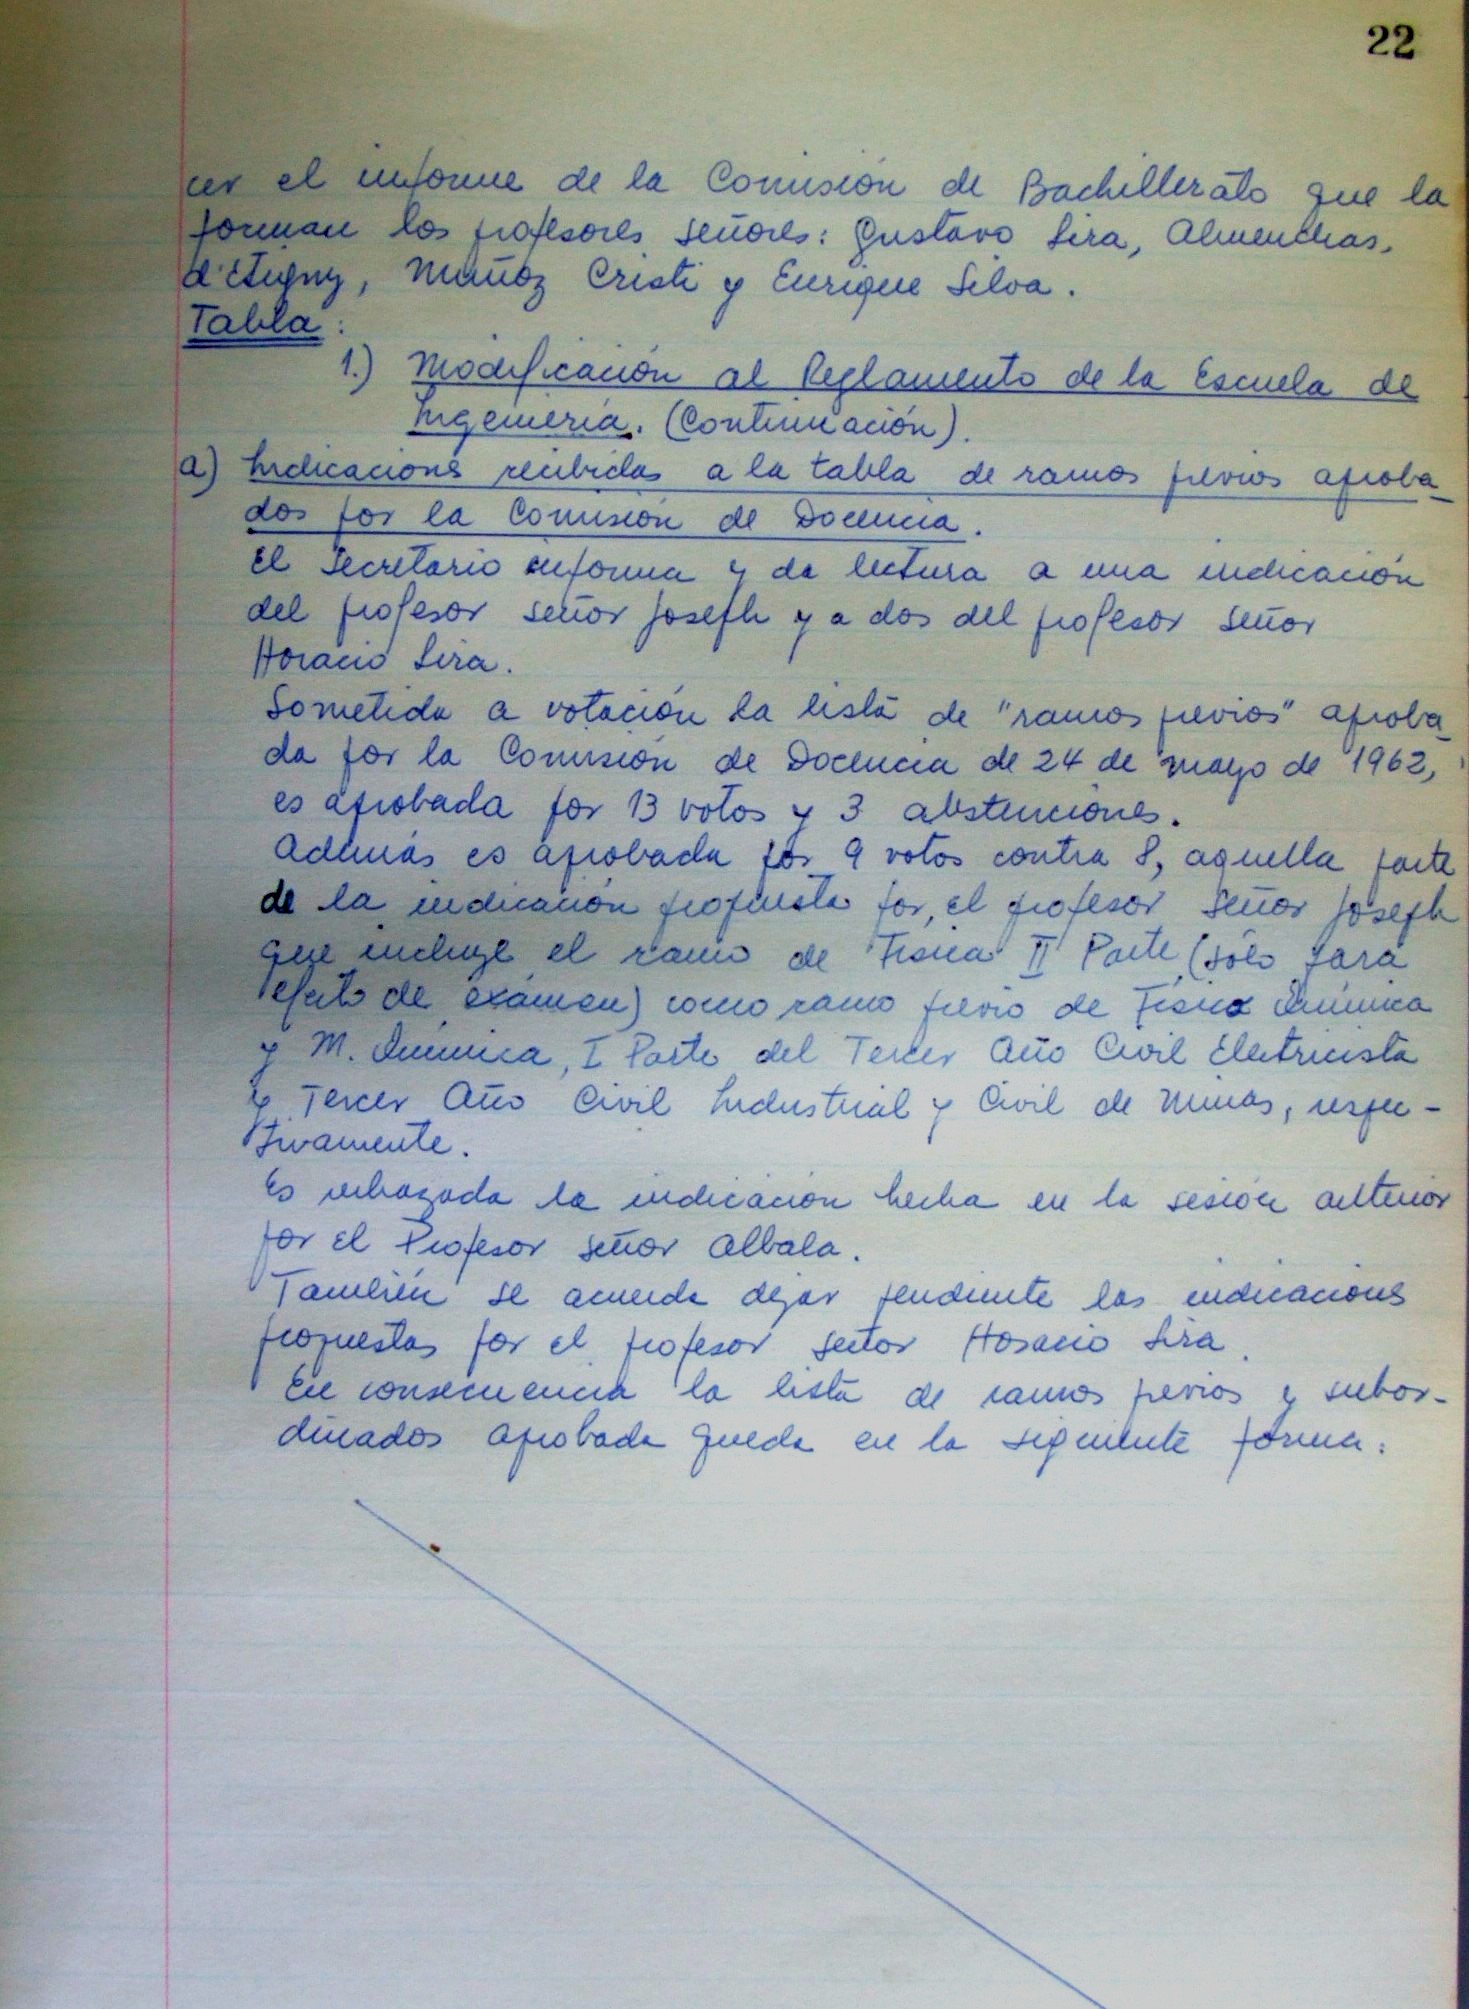 22
cer el informe de la Comisión de Bachillerato que la
forman los profesores señores: Gustavo Lira, Almendras,
d'Etigny, Muñoz Cristi y Enrique Silva.
Tabla:
1.) Modificación al Reglamento de la Escuela de
Ingeniería. (Continuación).
a) Indicaciones recibidas a la tabla de ramos previos aproba-
dos por la Comisión de Docencia.
El Secretario informa y da lectura a una indicación
del profesor señor Joseph y a dos del profesor señor
Horacio Lira.
Sometida a votación la lista de "ramos previos" aproba-
da por la Comisión de Docencia de 24 de mayo de 1962,
es aprobada por 13 votos y 3 abstenciones.
Además es aprobada por 9 votos contra 8, aquella parte
de la indicación propuesta por el profesor señor Joseph
que incluye el ramo de Física II Parte (sólo para
efecto de exámen) como ramo previo de Física Química
y M. Química, I Parte del Tercer Año Civil Electricista
y Tercer Año Civil Industrial y Civil de Minas, respec-
tivamente.
Es rechazada la indicación hecha en la sesión anterior
por el Profesor señor Albala.
También se acuerda dejar pendiente las indicaciones
propuestas por el profesor señor Horacio Lira.
En consecuencia la lista de ramos previos y subor-
dinados aprobada queda en la siguiente forma: